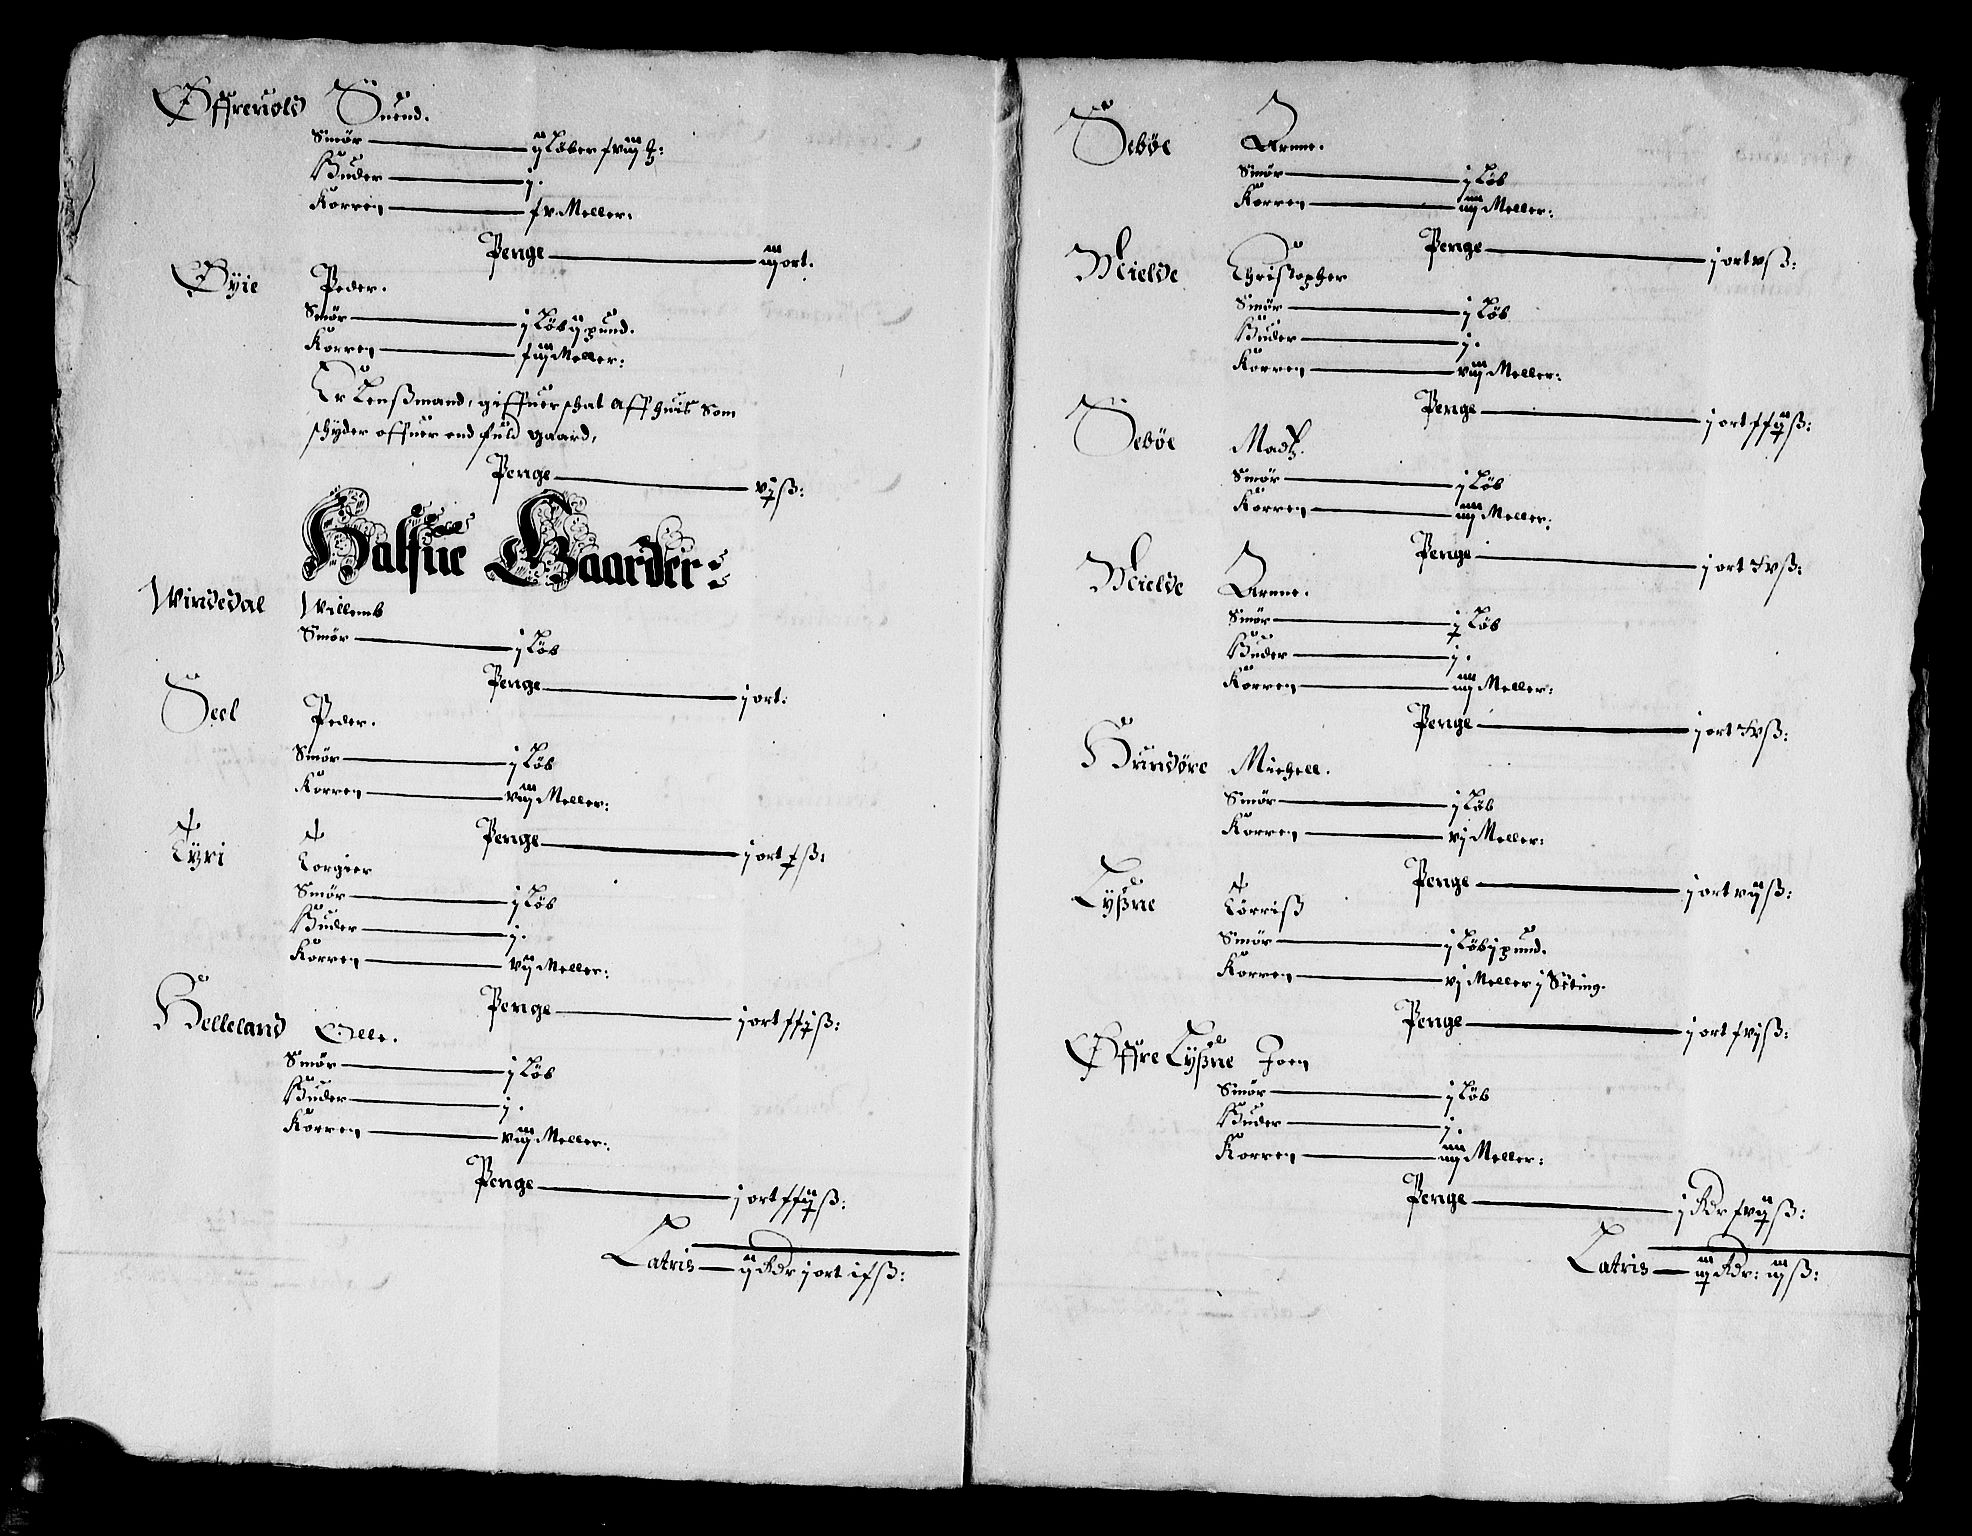 Øffreuold Suend.
Smør ij Løber
Huder j.
Korren Meller.
Penge iij ort.
Øÿie Peder.
Smør j Løb ij pund.
Korren Meller:
Er Lensßmand, giffuer schat aff huis Som
schyder offuer end fuld gaard,
Penge
Halfue Gaarder:
Windedal Willemb
Smør j Løb
Penge j ort:
Seel Peder.
Smør j Løb
Korren viij Meller:
Penge j ort
Tÿri Torgier
Smør j Løb
Huder j.
Korren vij Meller:
Penge j ort
Helleland Olle.
Smør j Løb
Huder j.
Korren viij Meller:
Penge j ort
Latris ij Rdr j ort
Sebøe Arnne.
Smør j Løb
Korren iiij Meller:
Penge j ort vß:
Mielde Christopher
Smør j Løb
Huder j.
Korren viij Meller:
Penge j ort
Sebøe Madtz.
Smør j Løb
Korren iiij Meller:
Penge j ort
Mielde Arnne.
Smør Løb
Huder j.
Korren iiij Meller:
Penge j ort
Hundøre Michell.
Smør j Løb
Korren vj Meller:
Penge j ort vijß:
Lyßne Törriß
Smør j Løb j pund.
Korren vj Meller j Sëting.
Penge j ort
Øffre Lyßne Joen
Smør j Løb
Huder j.
Korren iiij Meller:
Penge j Rdr
Latris Rdr: iijß: